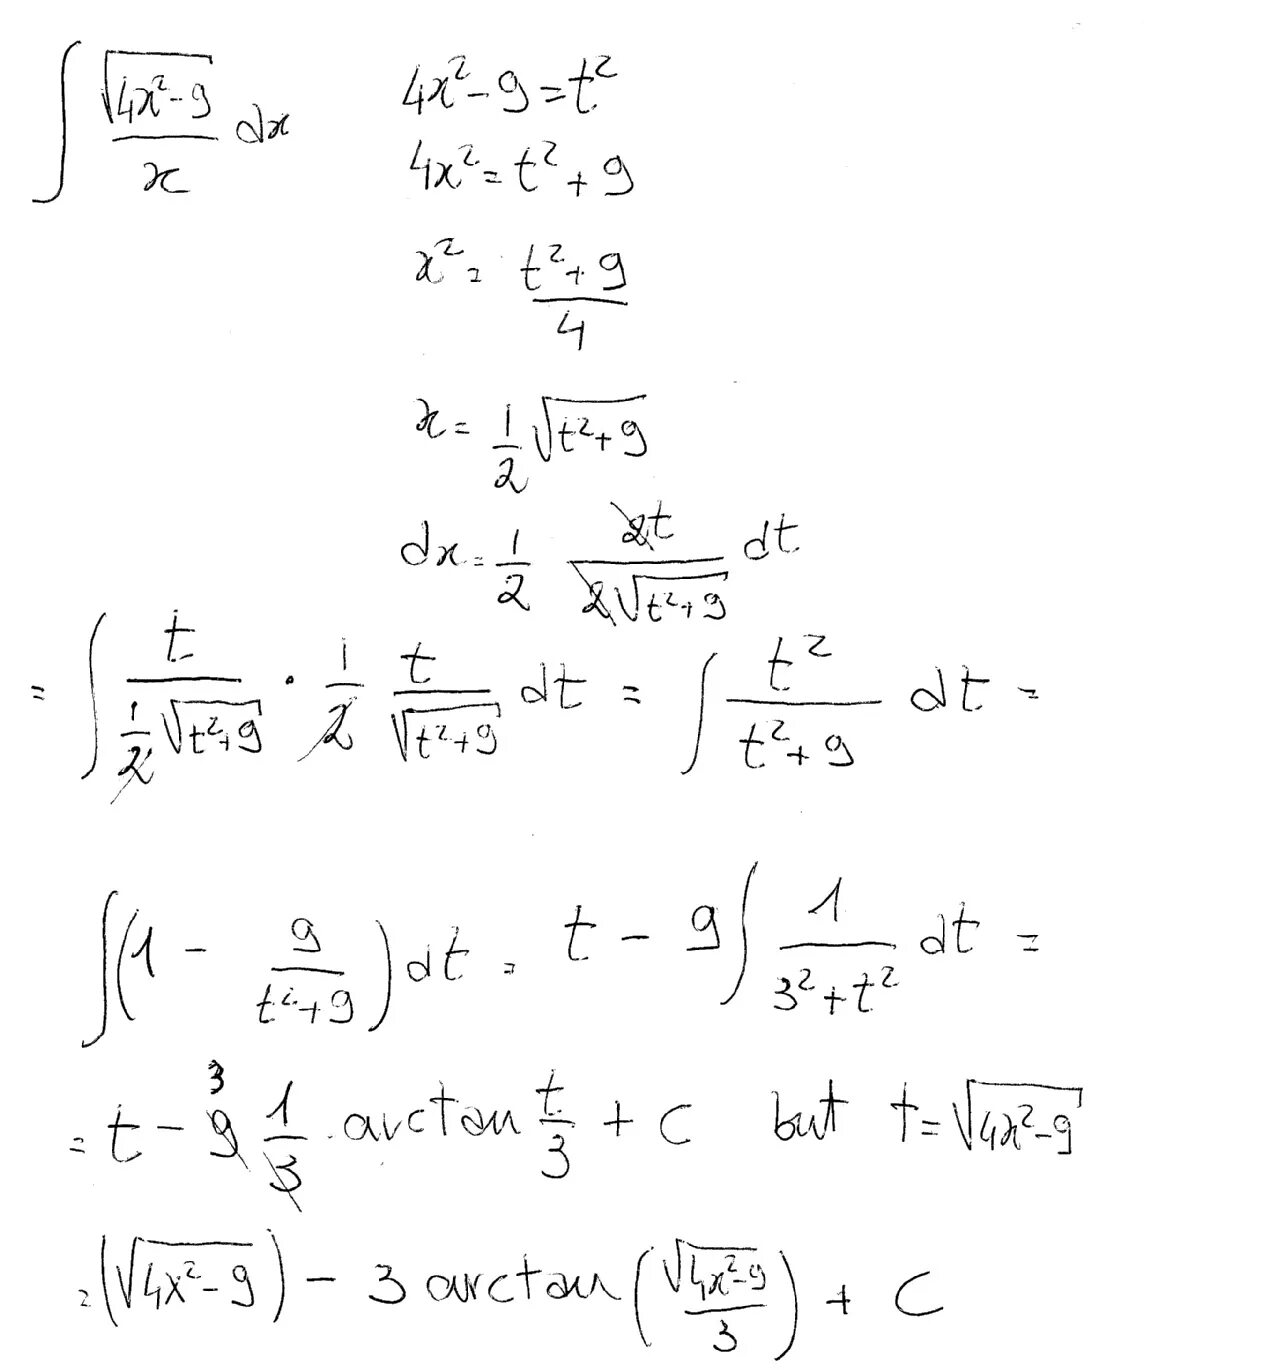 ∫ √(4x²-9)/x dx    4x²-9=t²
4x²=t²+9
x²= (t²+9)/4
x= 1/2 √(t²+9)
dx= 1/2 2t/(2√(t²+9)) dt
= ∫ t/(1/2 √(t²+9)) · 1/2 t/√(t²+9) dt = ∫ t²/(t²+9) dt =
∫(1 - 9/(t²+9)) dt = t - 9 ∫ 1/(3²+t²) dt =
= t - 9 3 1/3 · arctan t/3 + C but t= √(4x²-9)
= (√(4x²-9)) - 3 arctan (√(4x²-9)/3) + C